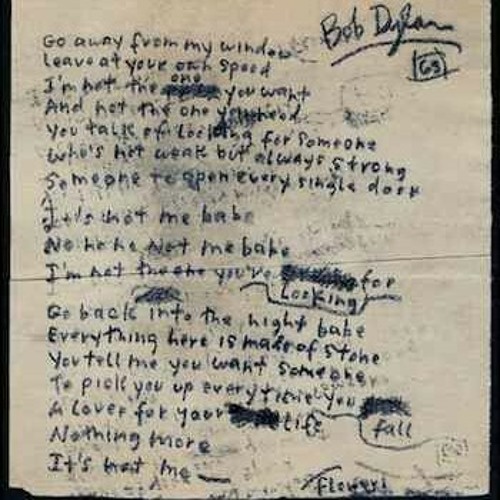 Bob Dylan
63
Go away from my window
Leave at your own speed
I'm not the one you want
And not the one you need
You talk of looking for someone
who's not weak but always strong
Someone to open every single door
It's not me babe
No no no Not me babe
I'm not the one you're looking for
Go back into the night babe
Everything here is made of stone
You tell me you want someone
To pick you up every time you fall
A lover for your life
Nothing more
It's not me
flower!